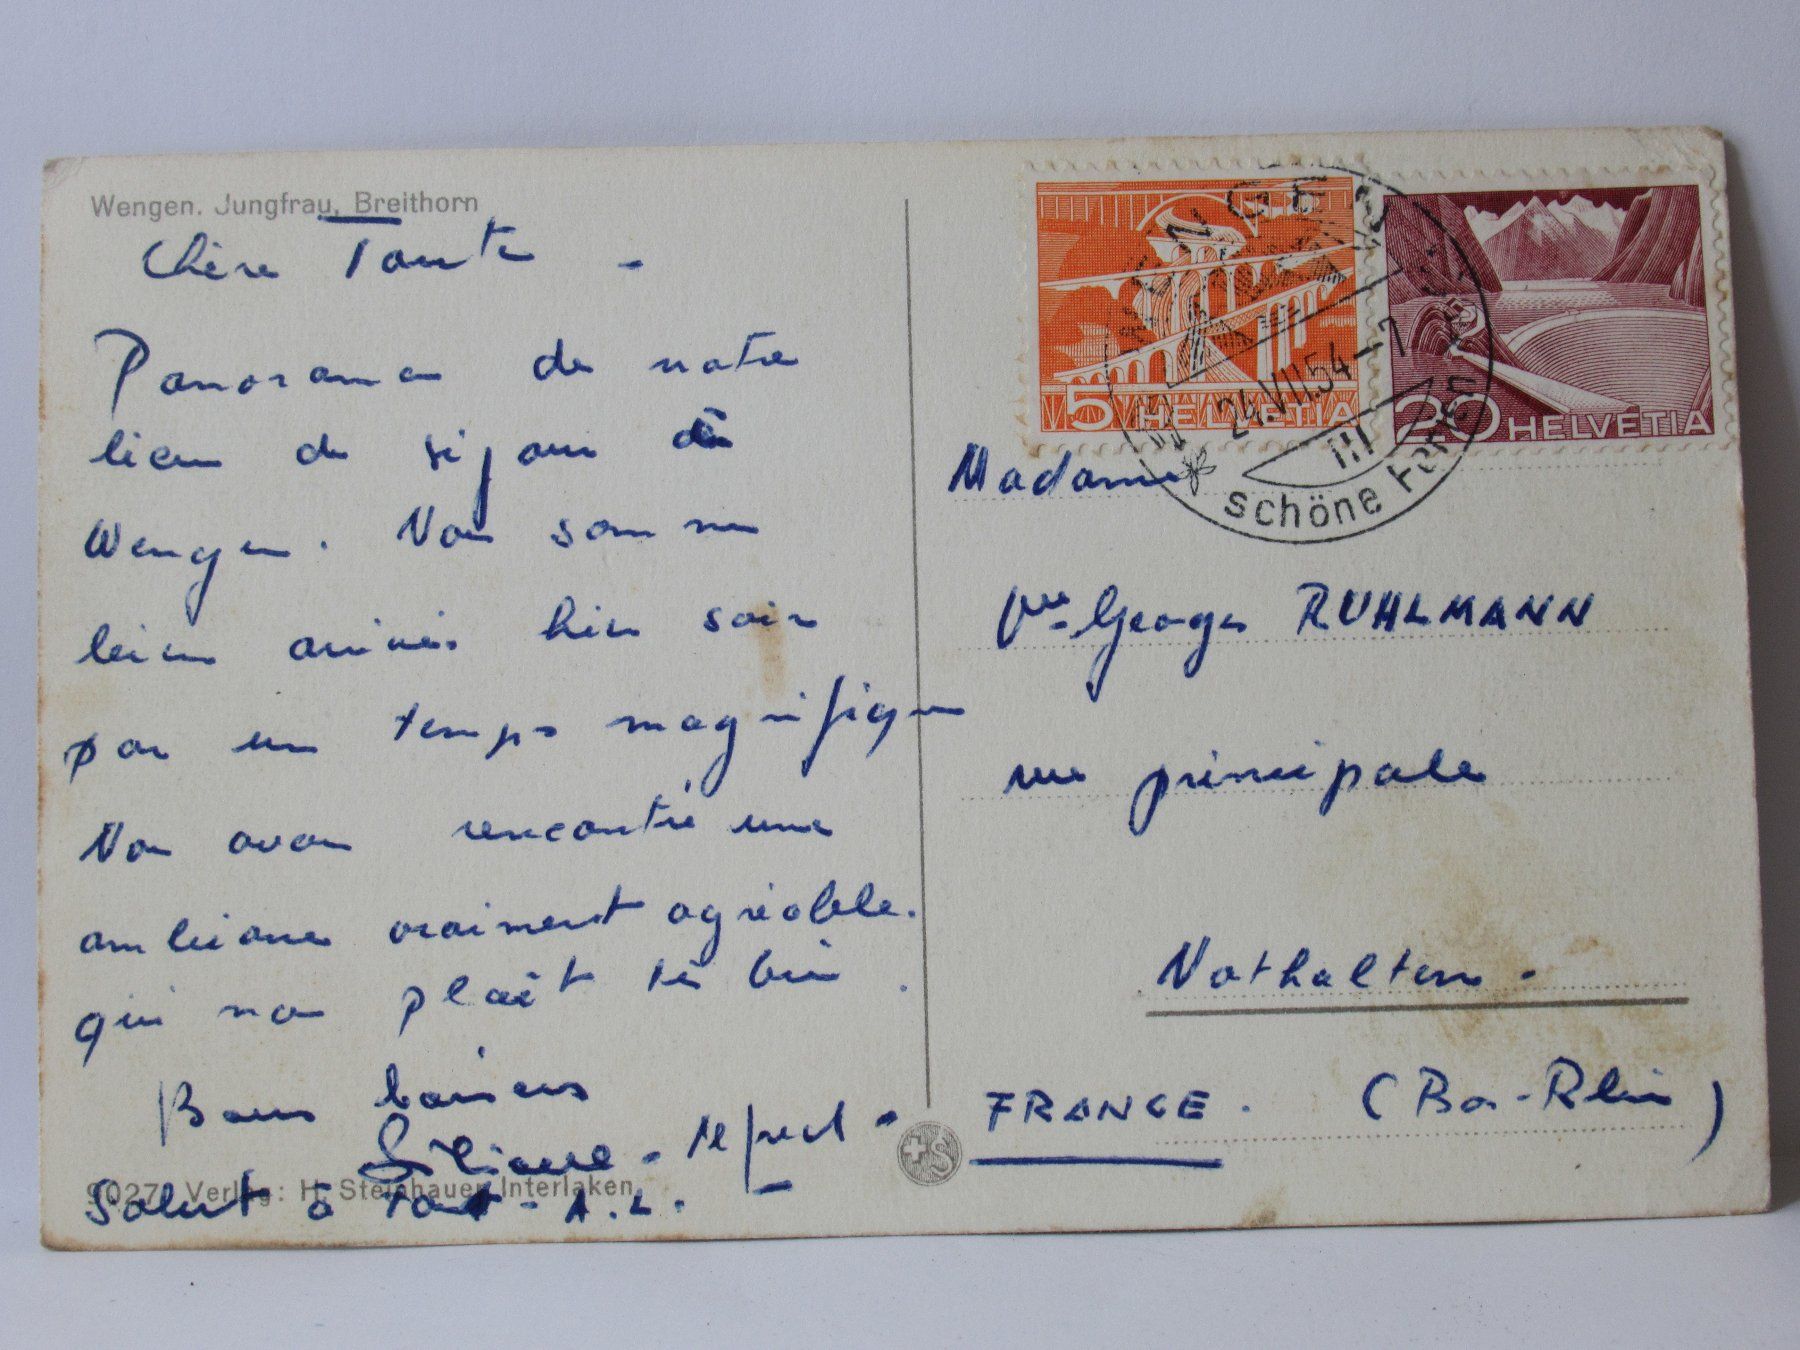 Wengen. Jungfrau, Breithorn
Chère Tante -
Panorama de notre
lieu de séjour de
Wengen. Nous sommes
bien arrivés hier soir
par un temps magnifique
Nous avons rencontré une
ambiance vraiment agréable.
qui nous plaît très bien.
Bons baisers
Liliane -
Salut à tous - A. L.
9027 Verlag: H. Steinhauer, Interlaken
5 HELVETIA
20 HELVETIA
WENGEN
24.VII.54-7
schöne Ferien
Madame
Vve Georges RUHLMANN
rue principale
Nothalten.
FRANCE. (Bas-Rhin)